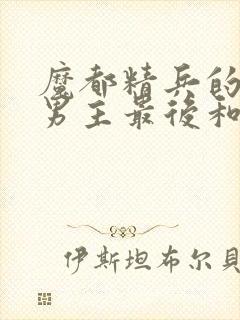 魔都精兵的
男主最後和
伊斯坦布尔貝